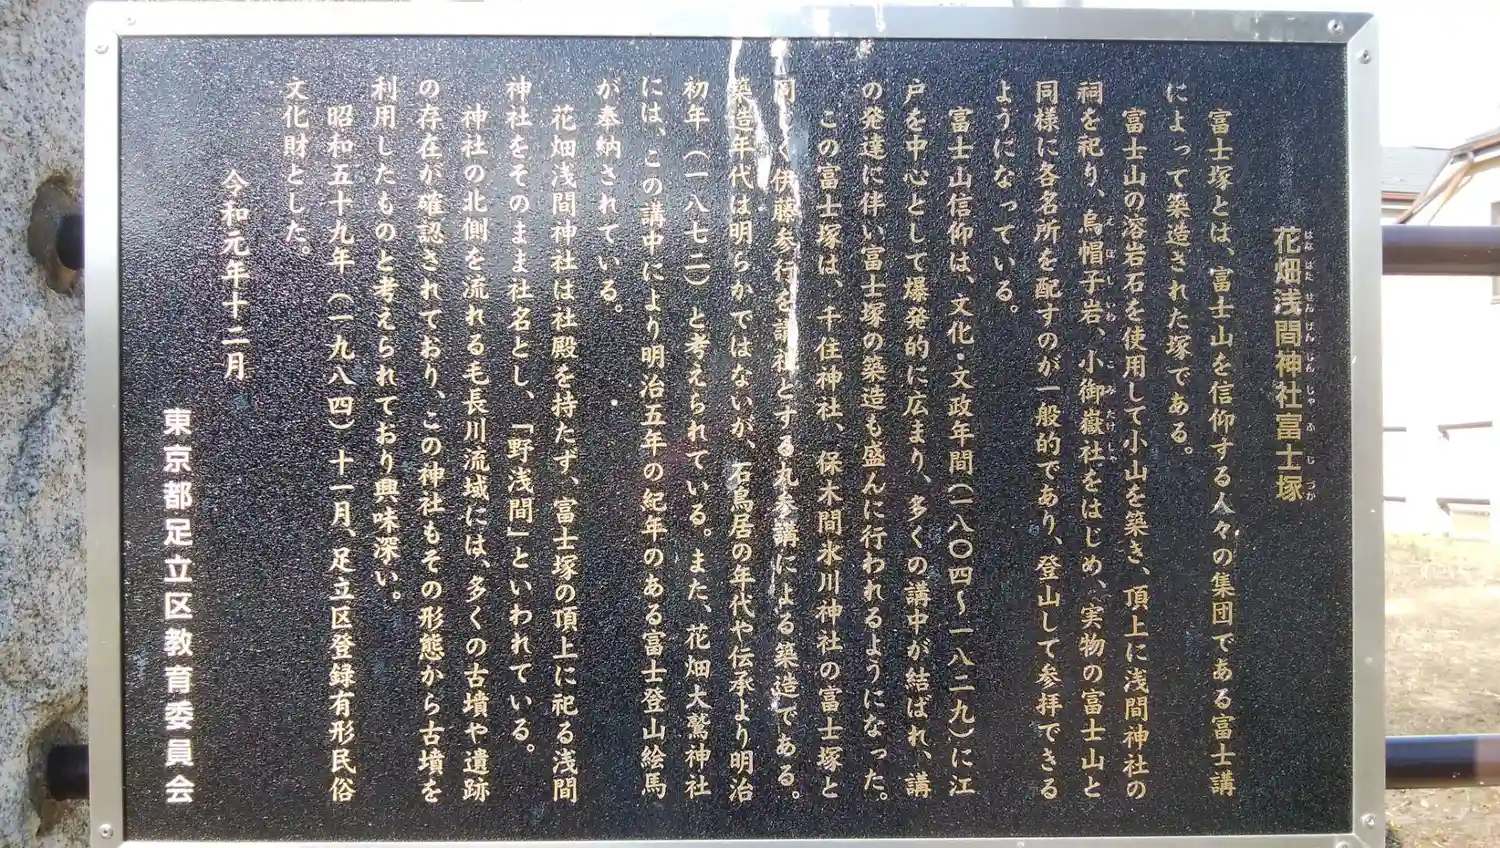 花畑浅間神社富士塚
はなはたせんげんじんじゃふじづか
富士塚とは、富士山を信仰する人々の集団である富士講
によって築造された塚である。
富士山の溶岩石を使用して小山を築き、頂上に浅間神社の
祠を祀り、烏帽子岩、小御嶽社をはじめ、実物の富士山と
えぼしいわ こみたけしゃ
同様に各名所を配すのが一般的であり、登山して参拝できる
ようになっている。
富士山信仰は、文化・文政年間(一八〇四～一八二九)に江
戸を中心として爆発的に広まり、多くの講中が結ばれ、講
の発達に伴い富士塚の築造も盛んに行われるようになった。
この富士塚は、千住神社、保木間氷川神社の富士塚と
同じく伊藤参行を講祖とする丸参講による築造である。
築造年代は明らかではないが、石鳥居の年代や伝承より明治
初年(一八七二)と考えられている。また、花畑大鷲神社
には、この講中により明治五年の紀年のある富士登山絵馬
が奉納されている。
花畑浅間神社は社殿を持たず、富士塚の頂上に祀る浅間
神社をそのまま社名とし、「野浅間」といわれている。
神社の北側を流れる毛長川流域には、多くの古墳や遺跡
の存在が確認されており、この神社もその形態から古墳を
利用したものと考えられており興味深い。
昭和五十九年(一九八四)十一月、足立区登録有形民俗
文化財とした。
令和元年十二月
東京都足立区教育委員会